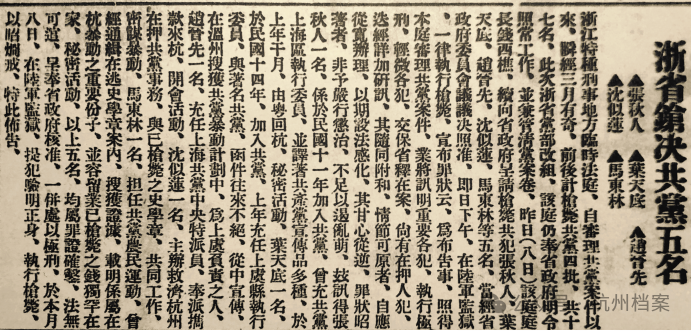 浙省鎗决共黨五名
▲張秋人 ▲葉天底 ▲趙晉先
▲沈似蓮 ▲馬東林
浙江特種刑事地方臨時法庭、自審理共黨案件以
來、瞬經三月有奇、前後計槍斃共黨四批、共十
七名、此次浙省黨部改組、該庭仍奉省政府期令
照常工作、並兼管清黨案卷、昨日(八日)該庭庭
長錢西樵、續向省政府呈請槍斃共犯張秋人、葉
天底、趙晉先、沈似蓮、馬東林等五名、當經省
政府委員會議議決照准、即日下午、在陸軍監獄
、一律執行槍斃、宣布罪狀云、爲布告事、照得
本庭審理共黨案件、業將訊明重要各犯、執行極
刑、輕微各犯、交保省釋在案、尙有在押人犯
迭經詳加研訊、其隨同附和、情節可原者、自應
從寬辦理、以期設法感化、其甘心從逆、罪狀昭
著者、非予嚴行懲治、不足以遏亂萌、茲訊得張
秋人一名、係於民國十一年加入共黨、曾充共黨
上海區執行委員、並譯著共產黨宣傳品多種、於
上年十月、由粵回杭、秘密活動、葉天底一名、
於民國十四年、加入共黨、上年充任上虞縣執行
委員、與著名共黨、函件往來不絕、從中宣傳、
在溫州搜獲共黨暴動計劃中、爲上虞負責之人、
趙晉先一名、充任上海共黨中央特派員、奉派携
款來杭、開會活動、沈似蓮一名、主辦救濟杭州
在押共黨事務、與已槍斃之史學章、共同工作、
密謀暴動、馬東林一名、担任共黨農民運動、曾
經通緝在逃史學章案內、搜獲證據、載明係屬在
杭暴動之重要份子、並容留業已槍斃之錢獨罕在
家、秘密活動、以上五名、均屬罪證確鑿、法無
可逭、呈奉省政府核准、一併處以極刑、於本月
八日、在陸軍監獄、提犯驗明正身、執行槍斃、
以昭炯戒、特此佈告、
杭州档案